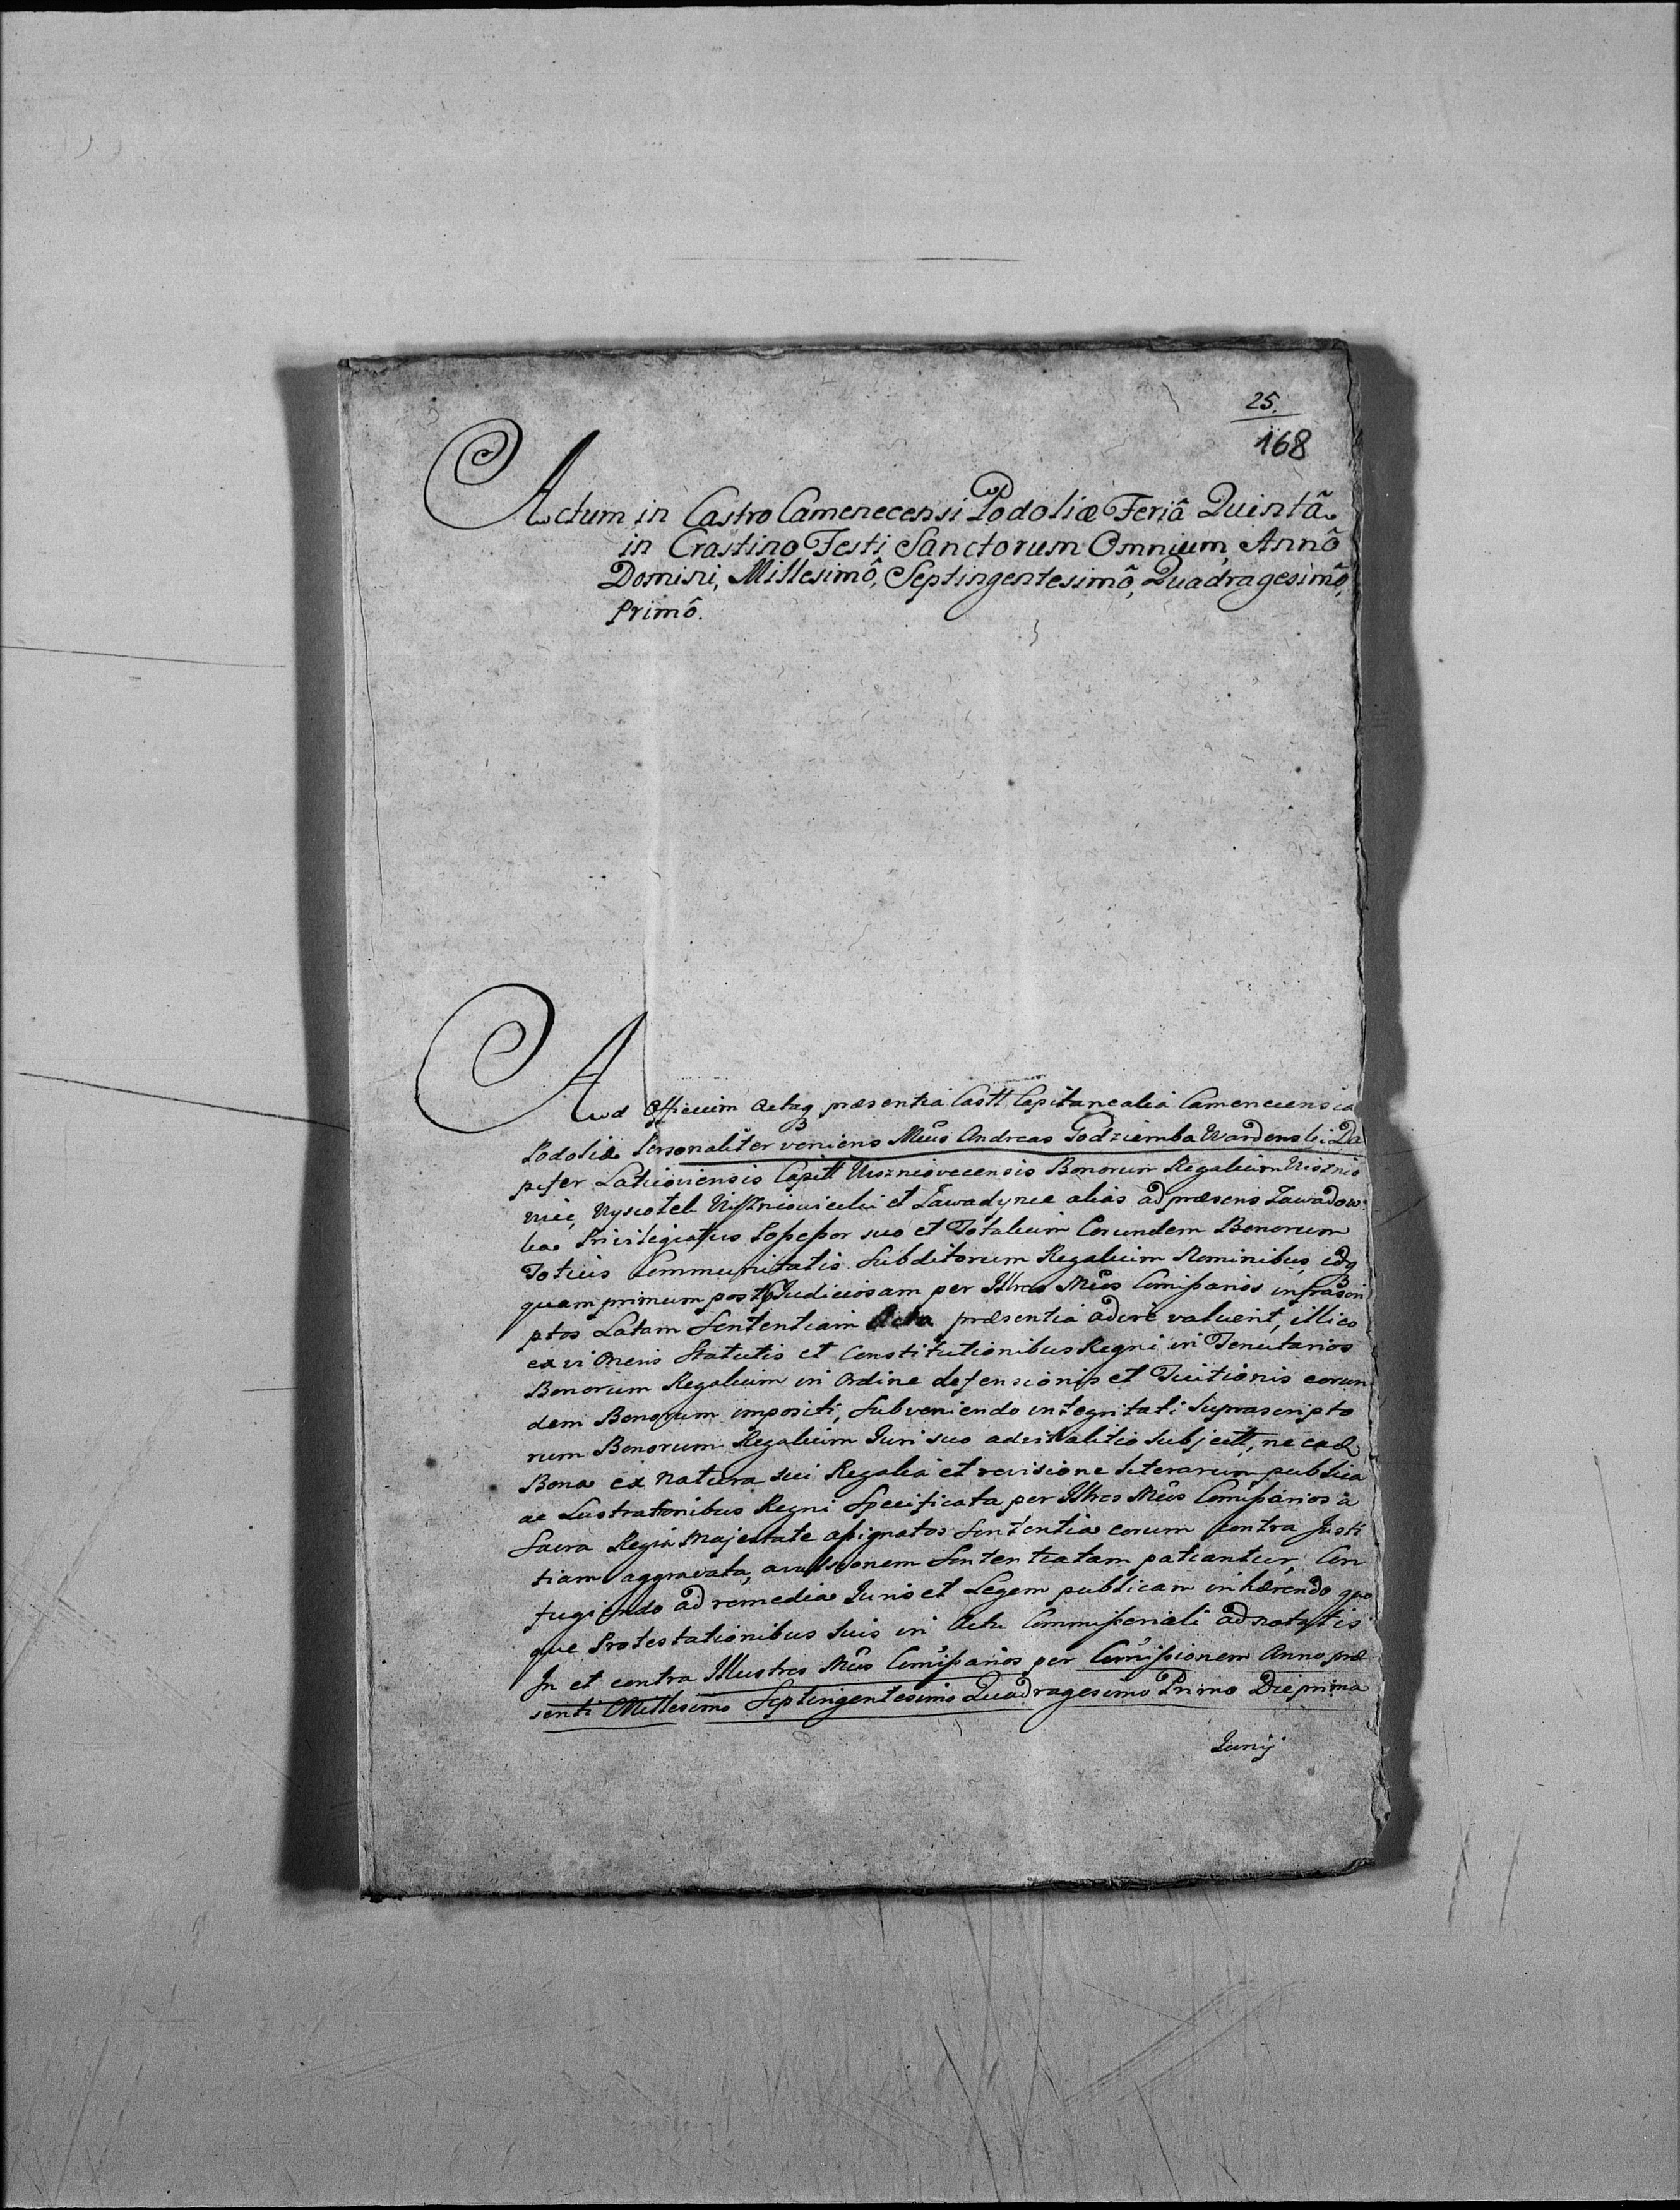 25.
168
Actum in Castro Camenecensi Podoliæ Feriâ Quintâ
in Crastino Festi Sanctorum Omnium, Annô
Domini, Millesimô, Septingentesimô, Quadragesimô,
Primô.
Ad Officium Actaq præsentia Castt Capitanealia Camenecensia
Podoliæ Personaliter veniens Mcus Andreas Godziemba Wardenski Da
pifer Laticioviensis Capitt Uiszniovecensis Bonorum Regalium Uisznio
wiec, et Zawadynce alias ad præsens Zawadow
ka Privilegiatus Possessor suo et Totalium Eorundem Bonorum
Totius Communitatis Subditorum Regalium Nominibus, idq
quam primum post Judiciosam per Illres Mcos Comissarios infrascri
ptos Latam Sententiam Acta præsentia adire valuerit, illico
ex vi Oneris Statutis et Constitutionibus Regni in Tenutarios
Bonorum Regalium in Ordine defensionis et Tuitionis eorun
dem Bonorum impositi, Subveniendo integritati Suprascripto
rum Bonorum Regalium Juri suo advitalitio Subjectt, ne ead
Bona ex natura sui Regalia et revisione literarum publica
ac Lustrationibus Regni Specificata per Illres Mcos Comissarios a
Sacra Regia Majestate assignatos Sententia eorum contra Justi
tiam aggravata, avulsionem Sententiatam patiantur, Con
fugiendo ad remedia Juris et Legem publicam inhærendo quo
que Protestationibus suis in Actu Commissoriali adnotatis
In et contra Illustres Mcos Comissarios per Comissionem Anno præ
senti Millesimo Septingentesimo Quadragesimo Primo Die prima
Junij